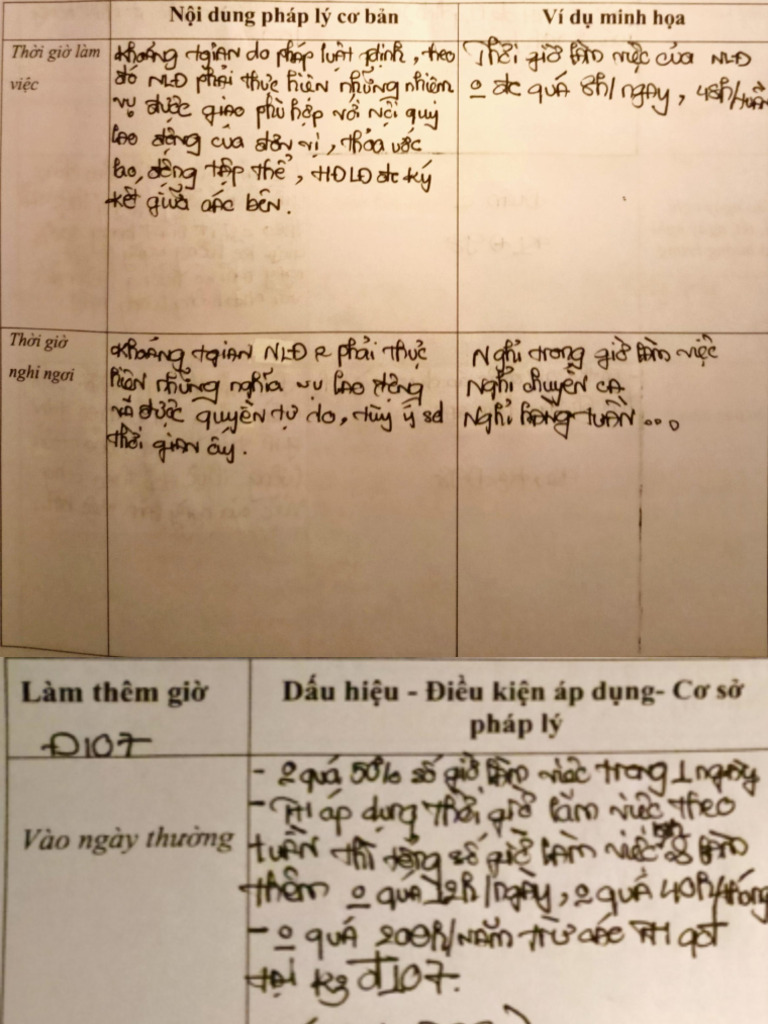 Nội dung pháp lý cơ bản
Ví dụ minh họa
Thời giờ làm
việc
Khoảng tgian do pháp luật định, theo
đó NLĐ phải thực hiện những nhiệm
vụ được giao phù hợp với nội quy
lao động của đơn vị, thỏa ước
lao động tập thể, HĐLĐ đc ký
kết giữa các bên.
Thời giờ làm việc của NLĐ
o đc quá 8h/ngày, 48h/tuần
Thời giờ
nghỉ ngơi
Khoảng tgian NLĐ k phải thực
hiện những nghĩa vụ lao động
và được quyền tự do, tùy ý sd
thời gian ấy.
Nghỉ trong giờ làm việc
Nghỉ chuyển ca
Nghỉ hàng tuần...
Làm thêm giờ
Đ107
Dấu hiệu - Điều kiện áp dụng- Cơ sở
pháp lý
Vào ngày thường
- o quá 50% số giờ làm việc trong 1 ngày
- TH áp dụng thời giờ làm việc theo
tuần thì tổng số giờ làm việc bt & làm
thêm o quá 12h/ngày, o quá 40h/tháng
- o quá 200h/năm trừ các TH qđ
tại k3 Đ107.